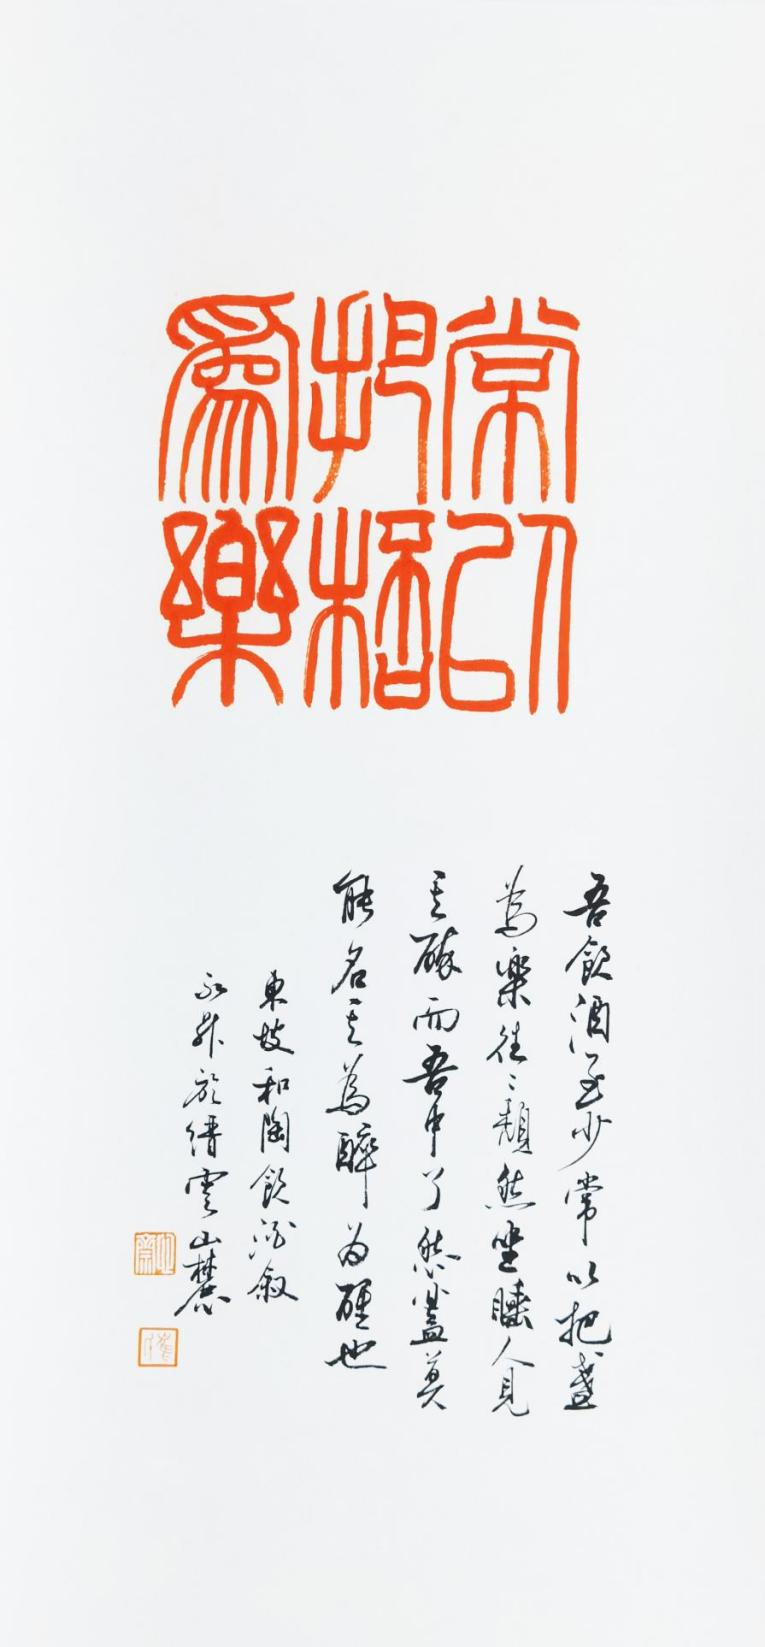 常以
把桮
為樂
吾飲酒至少常以把盞
為樂往〻頹然坐睡人見
其醉而吾中了然蓋莫
能名其為醉为醒也
東坡和陶飲酒敘
永於縉雲山麓